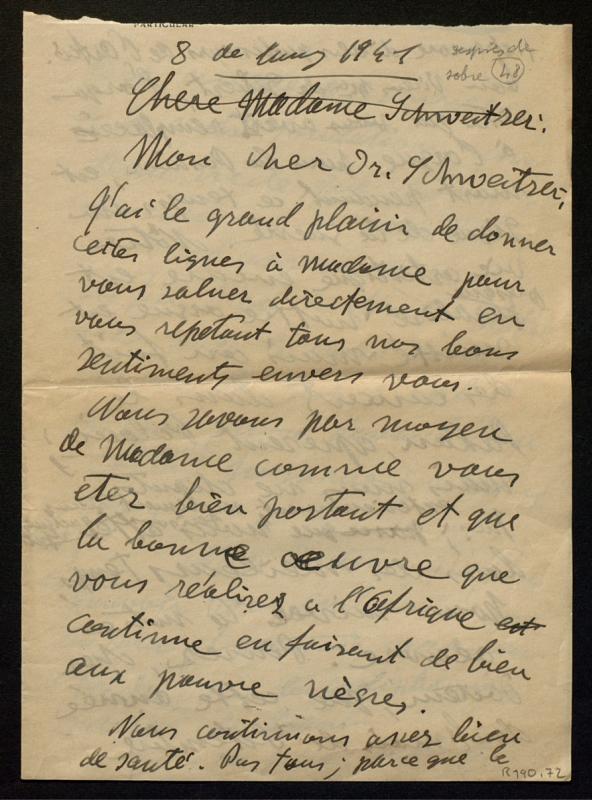 PARTICULAR
8 de Juny 1941
després de
sobre 48
Chere Madame Schweitzer.
Mon cher Dr. Schweitzer,
J'ai le grand plaisir de donner
cettes lignes à Madame pour
vous saluer directement en
vous repetant tous nos bons
sentiments envers vous.
Nous savons par moyen
de Madame comme vous
etez bien portant et que
la bonne oeuvre que
vous réalisez a l'Afrique est
continue en faisant de bien
aux pauvre nègres.
Nous continuons assez bien
de santé. Pas tous; parce que le
R.190.72